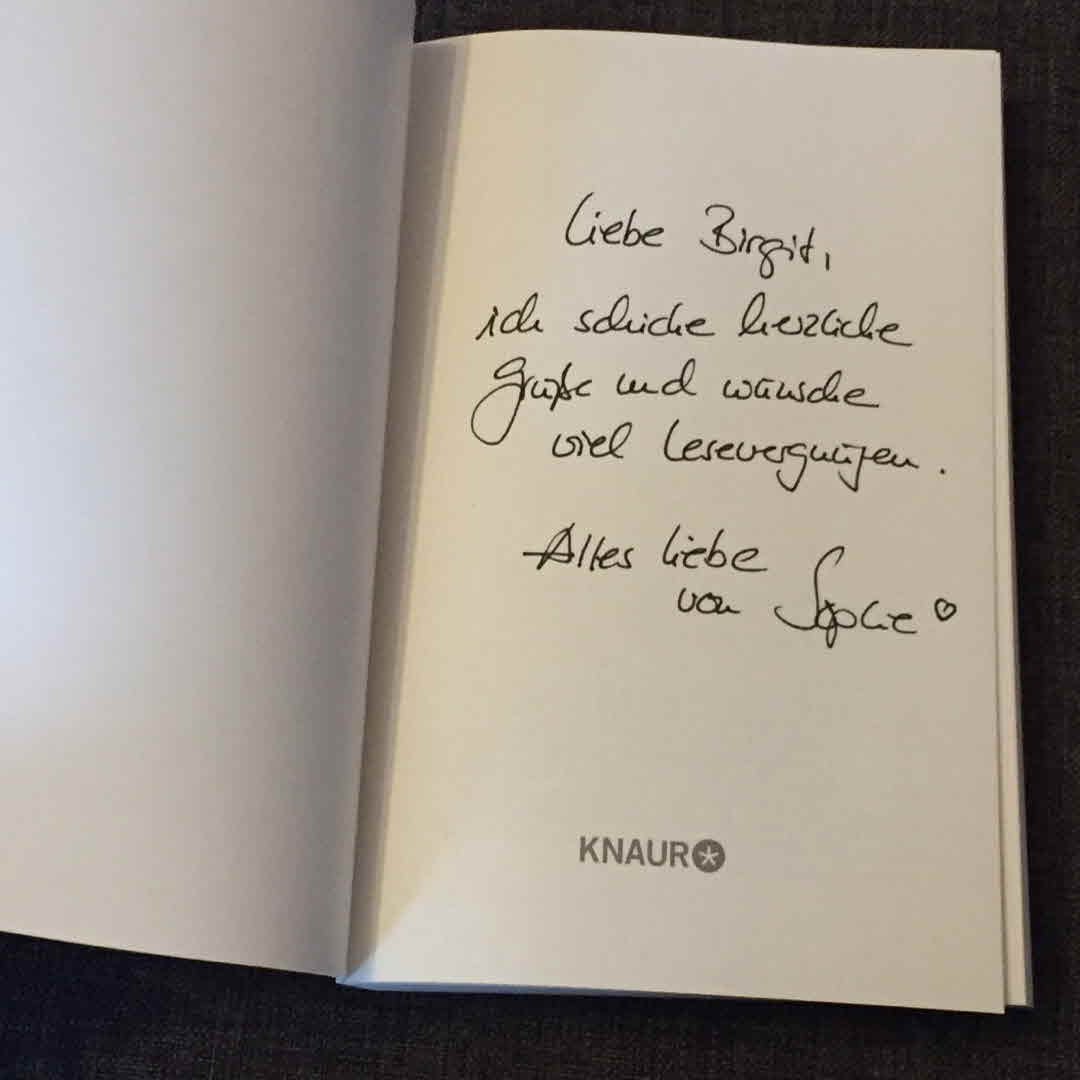 Liebe Birgit,
ich schicke herzliche
Grüße und wünsche
viel Lesevergnügen.
Alles Liebe
von Sophie ♡
KNAUR